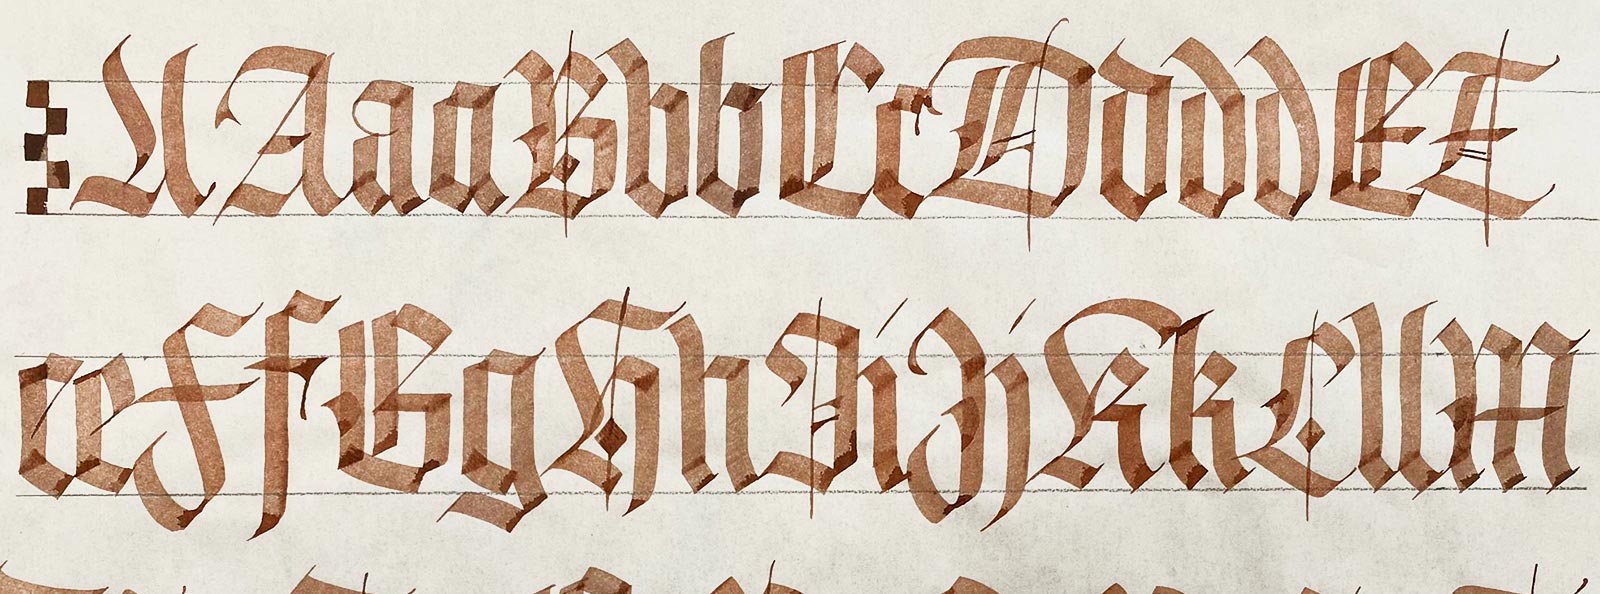 AAaaBbbCcDdddEE
eeFfGgHhIiJjKkLllM